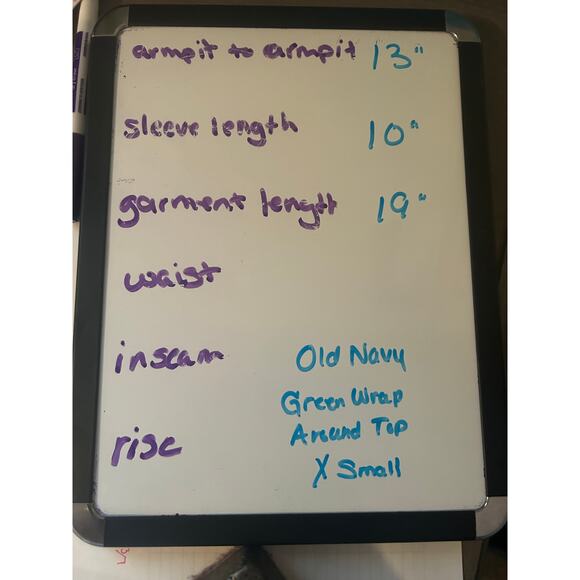 armpit to armpit 13"
sleeve length 10"
garment length 19"
waist
inseam
Old Navy
Green Wrap
Around Top
rise
X Small